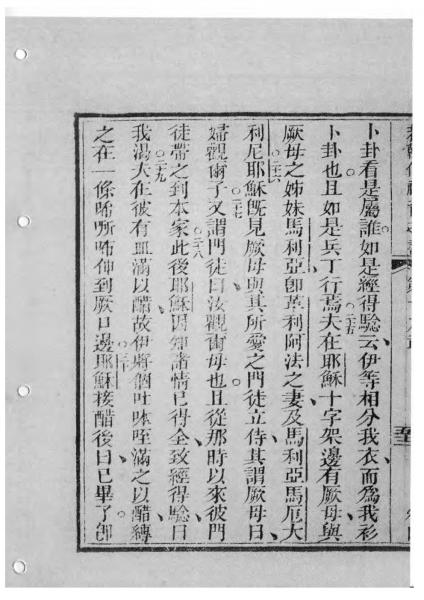 卜卦看是屬誰如是經得驗云伊等相分我衣而爲我衫
二五
卜卦也且如是兵丁行焉夫在耶穌十字架邊有厥母與
厥母之姊妹馬利亞卽革利阿法之妻及馬利亞馬厄大
二六
利尼耶穌旣見厥母與其所愛之門徒立侍其謂厥母曰
二七
婦觀爾子又謂門徒曰汝觀爾母也且從那時以來彼門
二八
徒帶之到本家此後耶穌因知諸情已得全致經得驗曰
二九
我渴夫在彼有皿滿以醋故伊將個吐咥滿之以醋縛
三十
之在一條唏伸到厥口邊耶穌接醋後曰已畢了卽